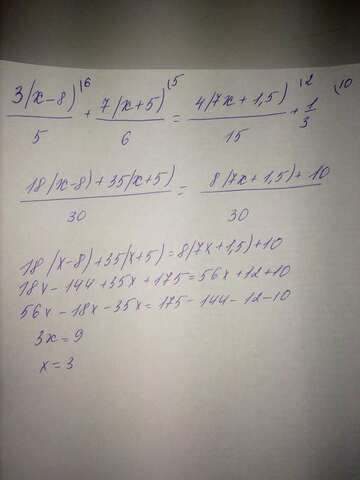 3(x-8)⁽⁶ / 5 + 7(x+5)⁽⁵ / 6 = 4(7x+1,5)⁽² / 15 + 1/3 ⁽¹⁰
18(x-8)+35(x+5) / 30 = 8(7x+1,5)+10 / 30
18(x-8)+35(x+5)=8(7x+1,5)+10
18x-144+35x+175=56x+12+10
56x-18x-35x=175-144-12-10
3x=9
x=3